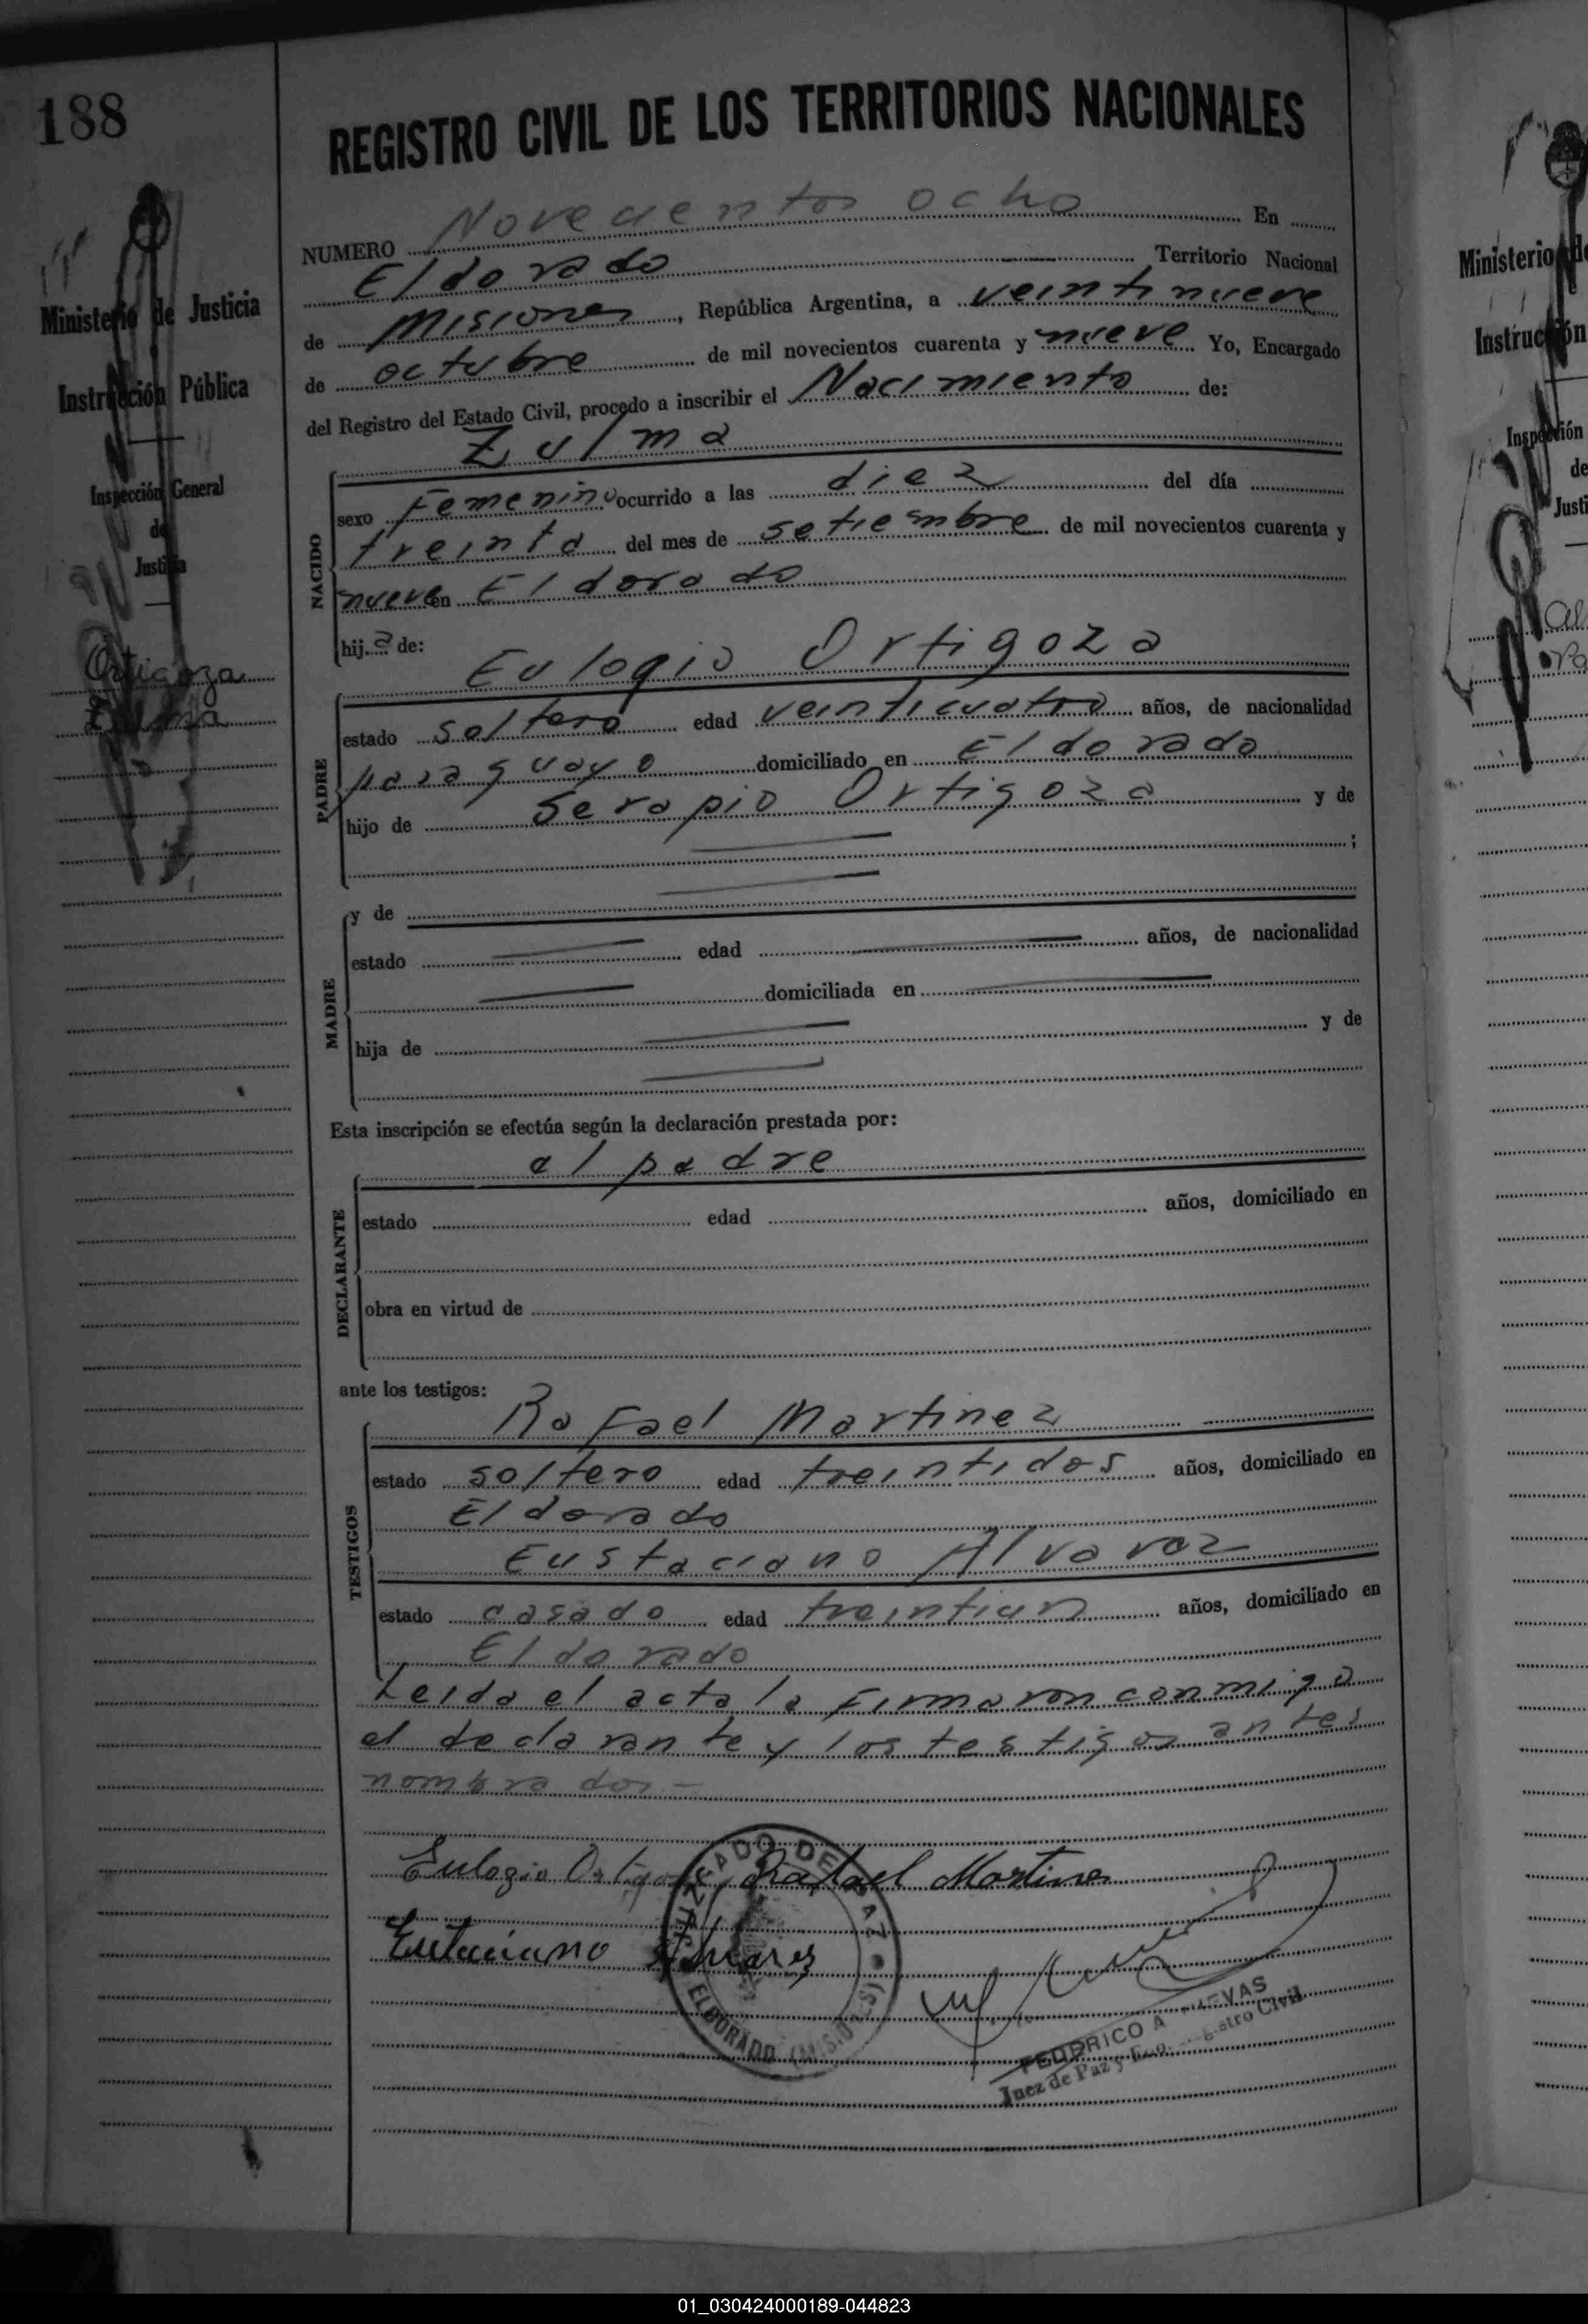 188
REGISTRO CIVIL DE LOS TERRITORIOS NACIONALES
NUMERO Novecientos ocho En
Eldorado Territorio Nacional
de Misiones, República Argentina, a veintinueve
de octubre de mil novecientos cuarenta y nueve Yo, Encargado
del Registro del Estado Civil, procedo a inscribir el Nacimiento de:
Zulma
sexo Femenino ocurrido a las diez del día
treinta del mes de setiembre de mil novecientos cuarenta y
nueve en Eldorado
hija de:
NACIDO
Eulogio Ortigoza
estado soltero edad veinticuatro años, de nacionalidad
paraguayo domiciliado en Eldorado
hijo de Serapio Ortigoza y de
;
PADRE
y de
estado edad años, de nacionalidad
domiciliada en
hija de y de
MADRE
Esta inscripción se efectúa según la declaración prestada por:
el padre
estado edad años, domiciliado en
obra en virtud de
DECLARANTE
ante los testigos:
Rafael Martinez
estado soltero edad treintidos años, domiciliado en
Eldorado
Eustaciano Alvarez
estado casado edad treintiun años, domiciliado en
Eldorado
TESTIGOS
Leida el acta la firmaron conmigo
el declarante y los testigos antes
nombrados.—
Eulogio Ortigoza Rafael Martinez
Eutaciano Alvares
JUZGADO DE PAZ
ELDORADO (MISIONES)
FEDERICO A CUEVAS
Juez de Paz y Enc. Registro Civil
Ministerio de Justicia
Instrucción Pública
Inspección General
de
Justicia
Ortigoza
Zulma
Ministerio de
Instrucción
Inspección
de
Justi
01_030424000189-044823